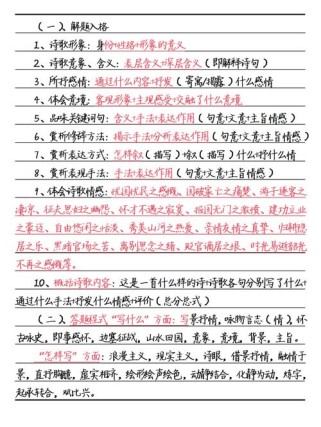 (一)、解题入格
1、诗歌形象：身份+性格+形象的意义
2、诗歌意象、含义：表层含义+深层含义(即解释诗句)
3、所抒感情：通过什么内容+抒发(寄寓/揭露)什么感情
4、体会意境：客观形象+主观感受+交融了什么意境
5、品味关键词句：含义+手法+表达作用(句意+文意+主旨情感)
6、赏析修辞方法：揭示手法+分析表达作用(句意+文意+主旨情感)
7、赏析表达方式：怎样叙(描写)+叙(描写)什么+抒什么情
8、赏析表现手法：手法+表达作用(句意+文意+主旨情感)
9、体会诗歌情感：忧国忧民之感慨、国破家亡之痛楚、游子迁客之
凄凉、征夫思妇之幽怨、怀才不遇之寂寞、报国无门之激愤、建功立业
之豪迈、自由悠闲之恬淡、秀美山河之热爱、亲情友情之真挚、归耕隐
居之乐、黑暗官场之苦、离别思念之绪、贬官谪居之恨、时光易逝韶光
不再之感慨等。
10、概括诗歌内容：这是一首什么样的诗+诗歌各句分别写了什么+
通过什么手法+抒发什么情感+评价(总分总式)
(二)、答题程式“写什么”方面：写景抒情，咏物言志(情)，怀
古咏史，即事感怀，边塞征战，山水田园，意象，意境，背景，主旨。
“怎样写”方面：浪漫主义，现实主义，诗眼，借景抒情，融情于
景，直抒胸臆，虚实相济，绘形绘声绘色，动静结合，化静为动，炼字，
起承转合，赋比兴。